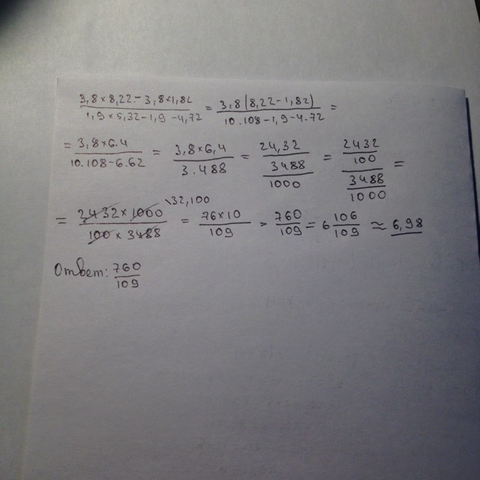 (3,8×8,22-3,8×1,82)/(1,9×5,32-1,9-4,72) = 3,8(8,22-1,82)/(10.108-1,9-4.72) =
= 3,8×6.4/(10.108-6.62) = 3,8×6,4/3.488 = 24,32/(3488/1000) = (2432/100)/(3488/1000) =
= 2432×1000/(100×3488) \32,100 = 76×10/109 = 760/109 = 6 106/109 ≈ 6,98
Ответ: 760/109